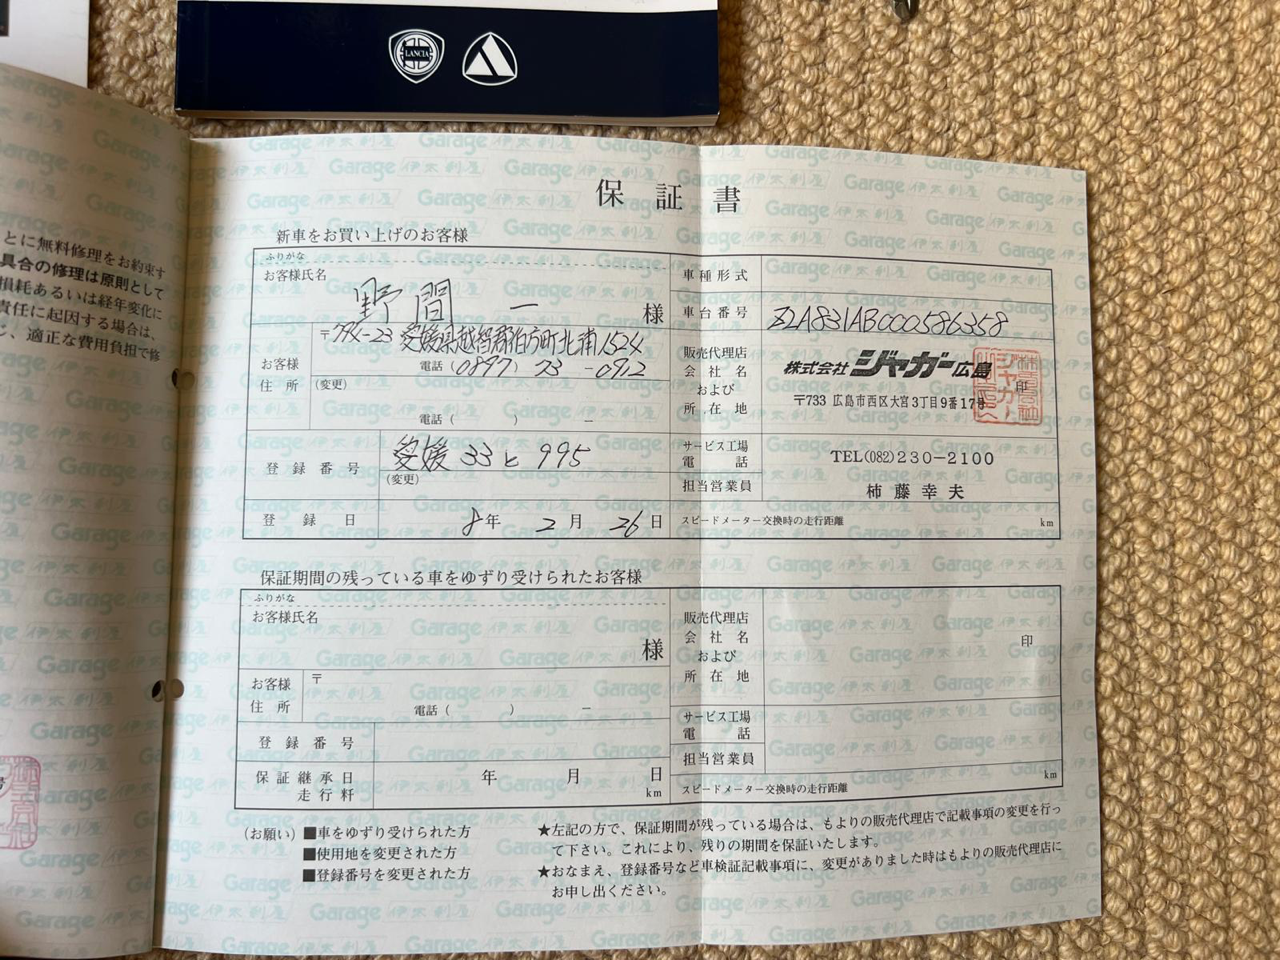 LANCIA
とに無料修理をお約束す
具合の修理は原則として
損耗あるいは経年変化に
責任に起因する場合は、
適正な費用負担で修
Garage 伊太利屋
保証書
新車をお買い上げのお客様
ふりがな
お客様氏名
野間 一 様
お客様
住所
〒794-23 愛媛県越智郡伯方町北浦1524
電話(0897)73-0912
(変更)
電話( ) −
登録番号
愛媛 33 と 995
(変更)
登録日
8年 2月 26日
車種形式
車台番号
ZLA831AB000586358
販売代理店
会社名
および
所在地
株式会社 ジャガー広島
印
〒733 広島市西区大宮3丁目9番17号
サービス工場
電話
TEL(082)230-2100
担当営業員
柿藤幸夫
スピードメーター交換時の走行距離 km
保証期間の残っている車をゆずり受けられたお客様
ふりがな
お客様氏名
様
お客様
住所
〒
電話( ) −
登録番号
保証継承日
走行粁
年 月 日
km
販売代理店
会社名
および
所在地
印
サービス工場
電話
担当営業員
スピードメーター交換時の走行距離 km
(お願い) ■車をゆずり受けられた方
■使用地を変更された方
■登録番号を変更された方
★左記の方で、保証期間が残っている場合は、もよりの販売代理店で記載事項の変更を行っ
て下さい。これにより、残りの期間を保証いたします。
★おなまえ、登録番号など車検証記載事項に、変更がありました時はもよりの販売代理店に
お申し出ください。